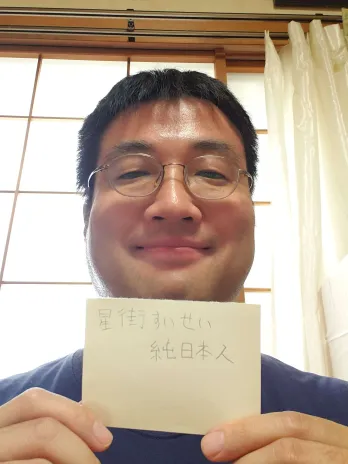 星街すいせい
純日本人